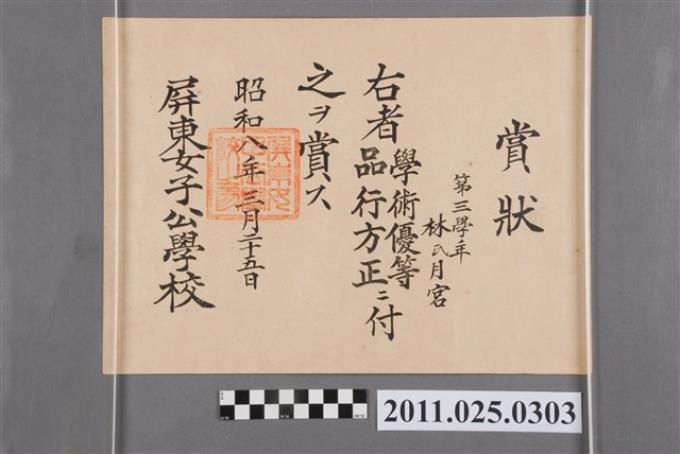 賞狀
第三學年
林氏月宮
右者學術優等品行方正ニ付
之ヲ賞ス
昭和八年三月二十五日
屏東女子公學校
2011.025.0303